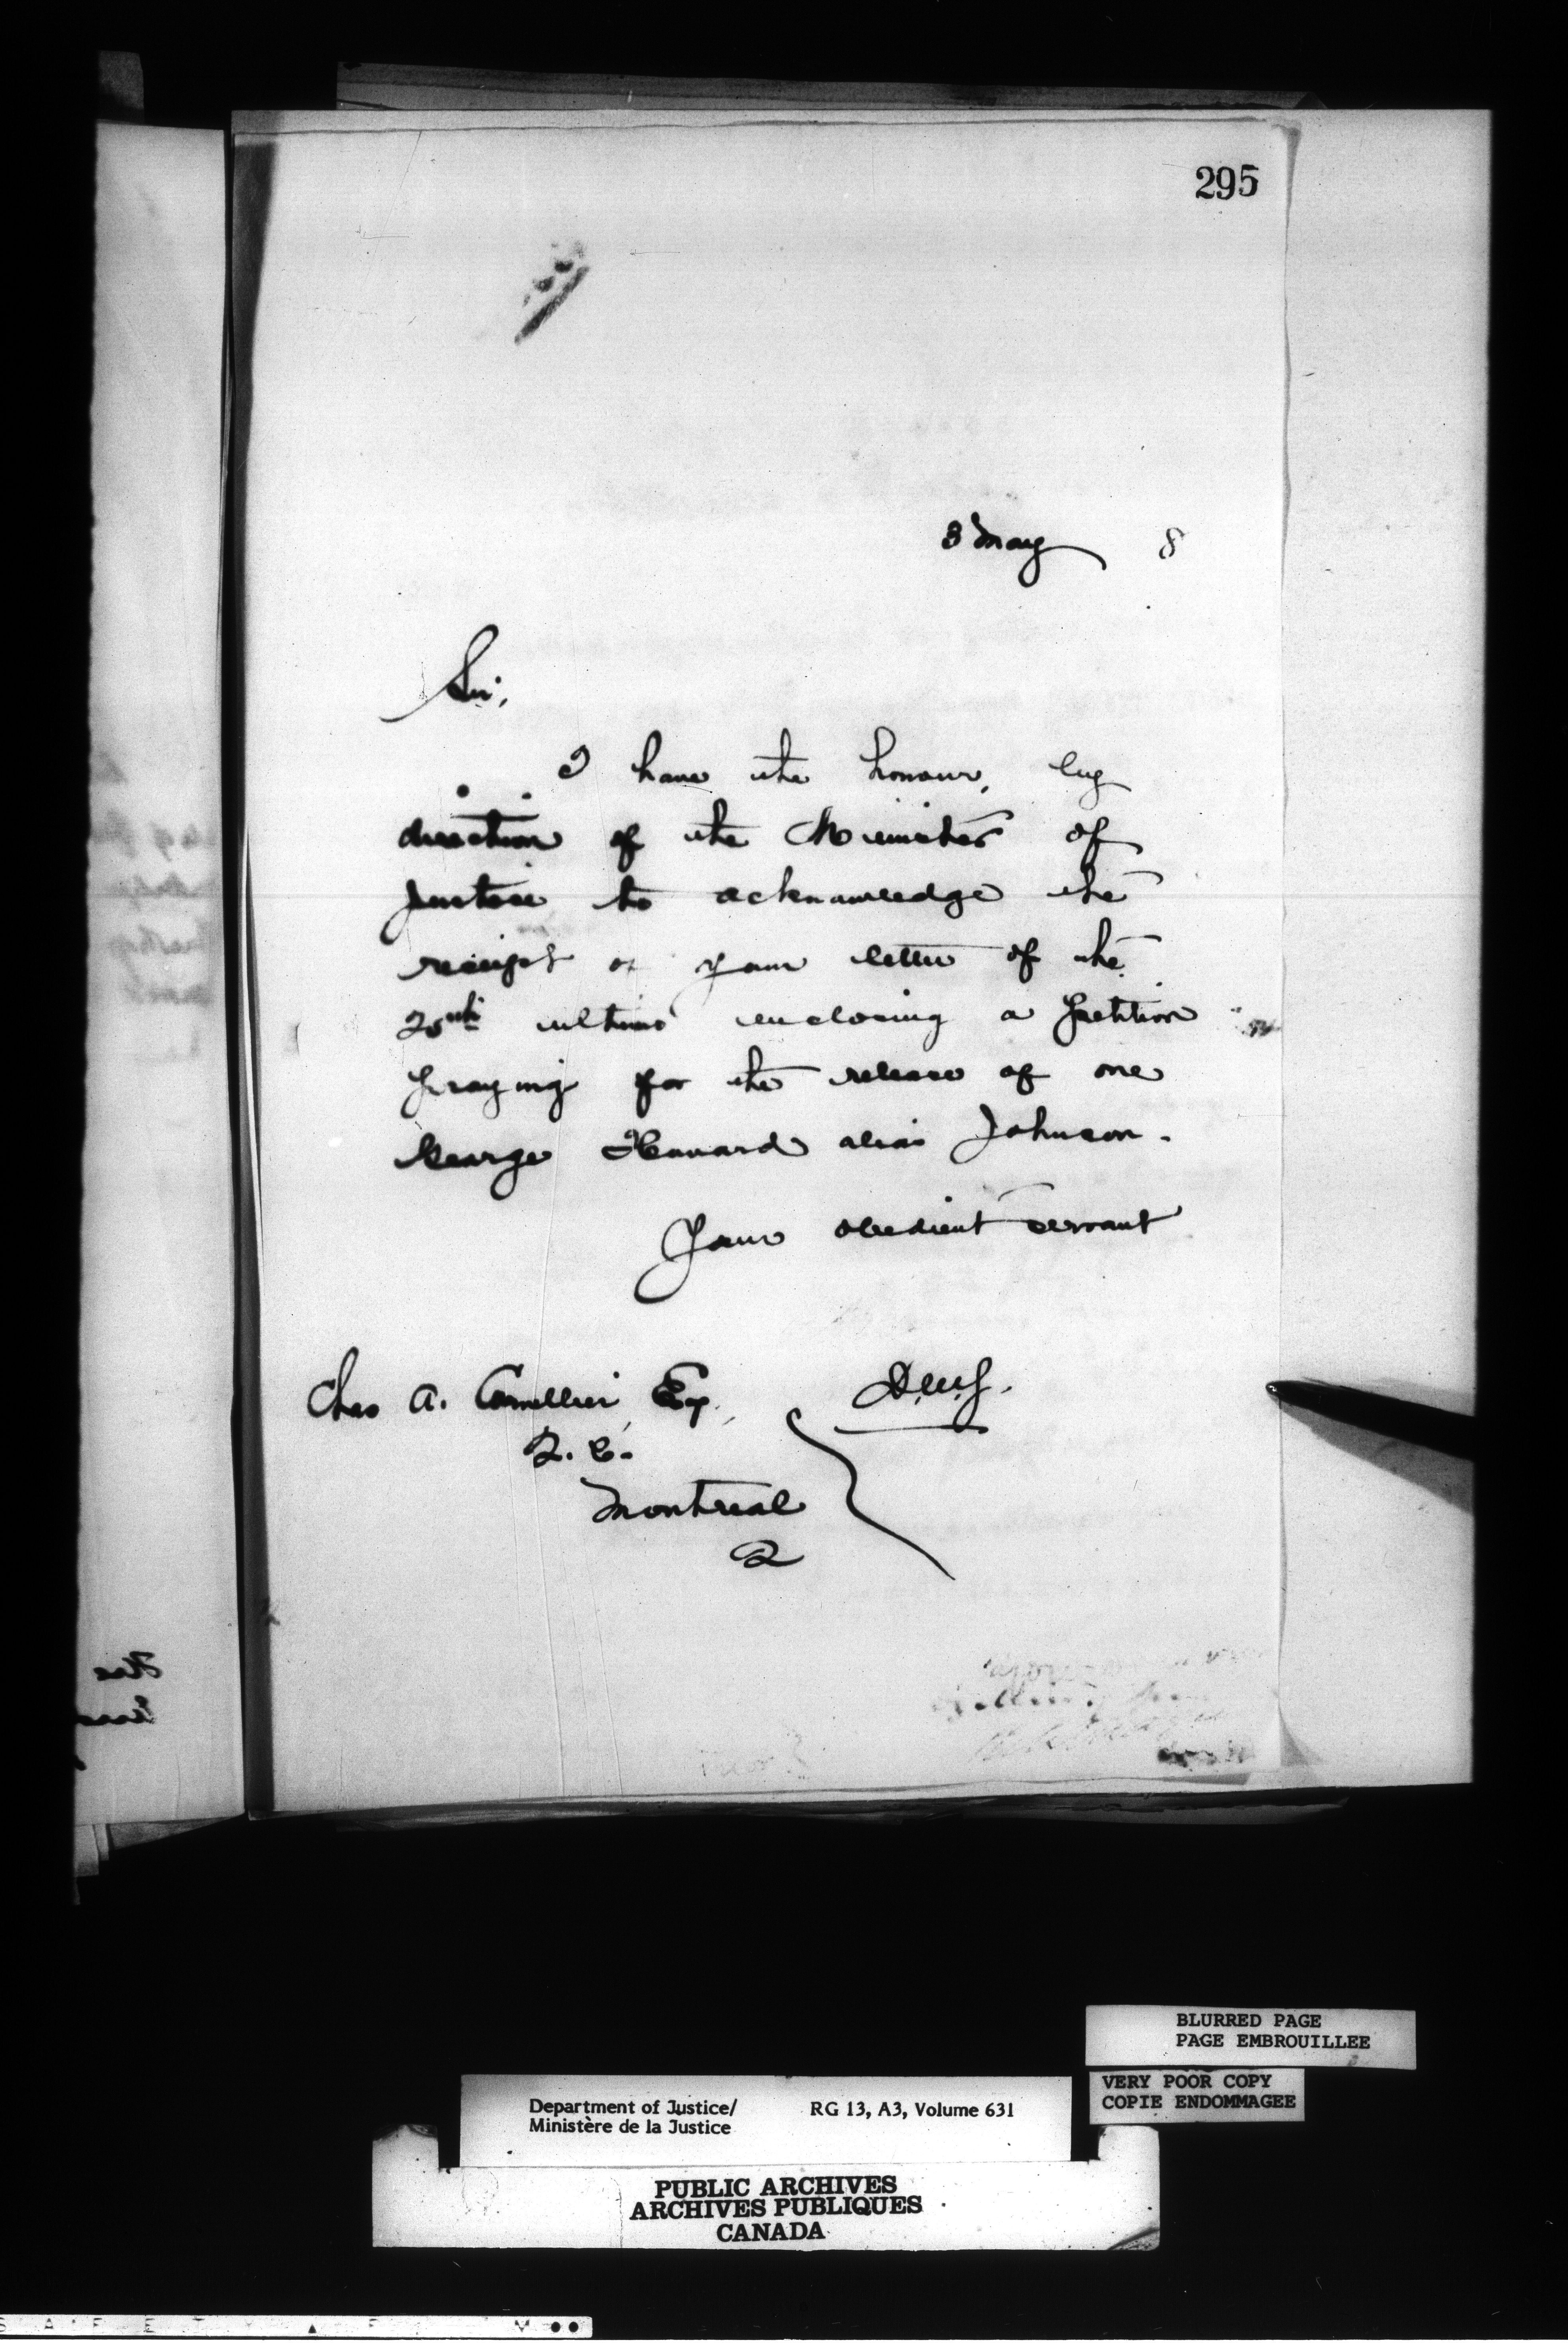 295
3 May 8
Sir,
I have the honour, by
direction of the Minister of
Justice to acknowledge the
receipt of your letter of the
20th ultimo enclosing a petition
praying for the release of one
George Howard alias Johnson.
Your obedient servant
Chas A. Cornellier, Esq,
Q. C.
Montreal
Q
BLURRED PAGE
PAGE EMBROUILLEE
VERY POOR COPY
COPIE ENDOMMAGEE
Department of Justice/ RG 13, A3, Volume 631
Ministère de la Justice
PUBLIC ARCHIVES
ARCHIVES PUBLIQUES
CANADA